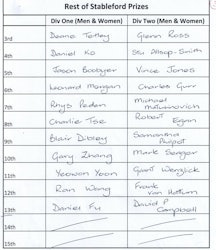 Rest of Stableford Prizes
Div One (Men & Women) Div Two (Men & Women)
3rd Deane Tetley Glenn Ross
4th Daniel Ko Stu Allsop-Smith
5th Jason Boobyer Vince Jones
6th Leonard Morgan Charles Gurr
7th Rhys Peden Michael
8th Charlie Tse Robert Egan
9th Blair Dibley Samantha
10th Gary Zhang Mark Seagar
11th Yeowon Yoon Grant
12th Ran Wang Frank van Hattum
13th Daniel Fu David P Campbell
14th
15th